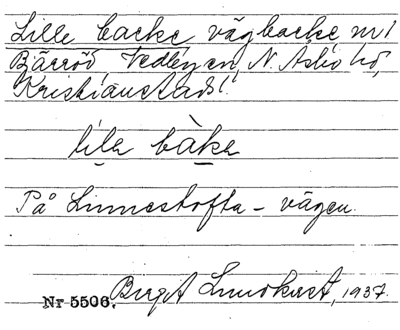 Lille backe vägbacke nr 1
Bjärröd Vedbyn, N. Åsbo hd,
Kristianstads l.
lila bàka
På Linnestofta-vägen.
Nr 5506. Birgit Lundkvist, 1937.